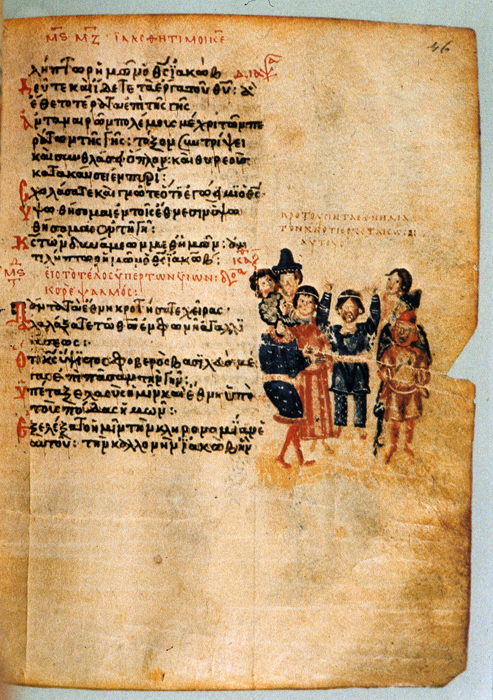 ΜΕ ΜΖ
46
λήπτωρ ἡμῶν ὁ θς ἰακώβ· διαψα
Δεῦτε καὶ ἴδετε τὰ ἔργα τοῦ θυ· ἃ
ἔθετο τέρατα ἐπὶ τῆς γῆς
Ἀνταναιρῶν πολέμους μέχρι τῶν πε
ράτων τῆς γῆς: τόξον συντρίψει
καὶ συνθλάσει ὅπλον· καὶ θυρεοὺς
κατακαύσει ἐν πυρί:
Σχολάσατε καὶ γνῶτε ὅτι ἐγώ εἰμι ὁ θς·
ὑψωθήσομαι ἐν τοῖς ἔθνεσιν ὑψω
θήσομαι ἐν τῇ γῇ:
Κς τῶν δυνάμεων μεθ ἡμῶν: ἀντι
λήπτωρ ἡμῶν ὁ θς ἰακώβ:
ΕΙΣ ΤΟ ΤΕΛΟΣ ΥΠΕΡ ΤΩΝ ΥΙΩΝ:
ΚΟΡΕ ΨΑΛΜΟΣ:
Πάντα τὰ ἔθνη κροτήσατε χεῖρας
ἀλαλάξατε τῶ θῶ ἐν φωνῆ ἀγαλλι
άσεως:
Ὅτι κς ὕψιστος φοβερὸς βασιλεὺς μέ
γας ἐπὶ πᾶσαν τὴν γῆν:
Ὑπέταξε λαοὺς ἡμῖν καὶ ἔθνη ὑπὸ
τοὺς πόδας ἡμῶν:
Ἐξελέξατο ἡμῖν τὴν κληρονομίαν
αὐτοῦ: τὴν καλλονὴν ἰακὼβ ἣν